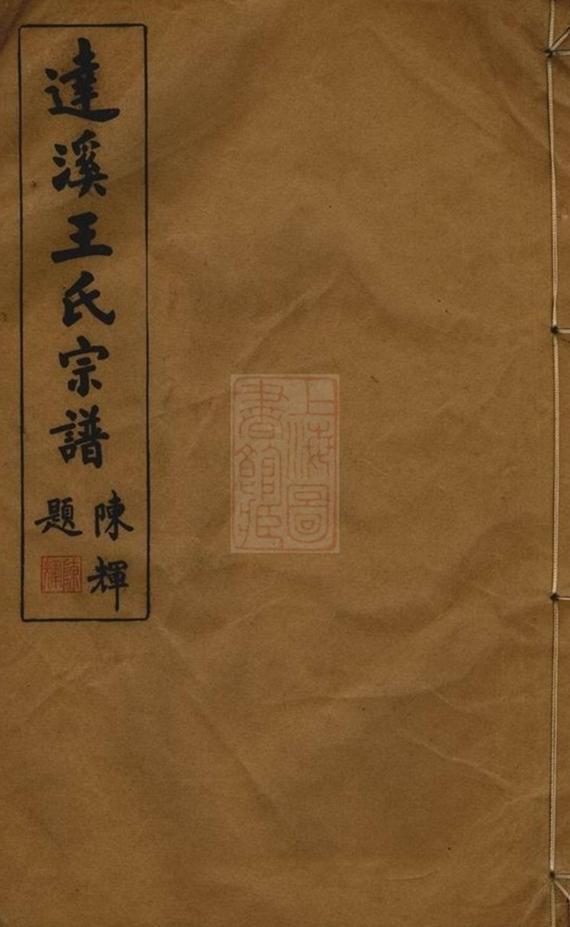 達溪王氏宗譜
陳輝
題
陳輝
上海圖
書館藏